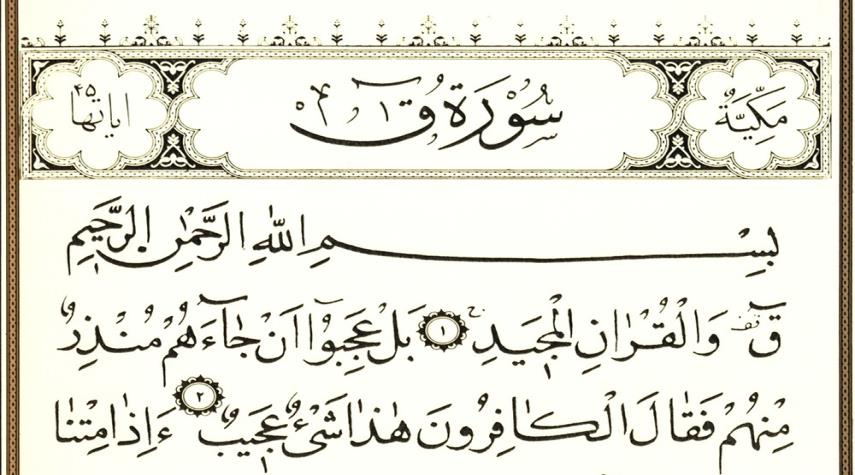 مَكِّيَّةٌ
سُورَةُ قٓ
اٰيَاتُهَا ٤٥
بِسْمِ اللّٰهِ الرَّحْمٰنِ الرَّحٖيمِ
قٓ وَالْقُرْاٰنِ الْمَجٖيدِ ١ بَلْ عَجِبُٓوا اَنْ جَٓاءَهُمْ مُنْذِرٌ
مِنْهُمْ فَقَالَ الْكَافِرُونَ هٰذَا شَیْءٌ عَجٖيبٌ ٢ ءَاِذَا مِتْنَا